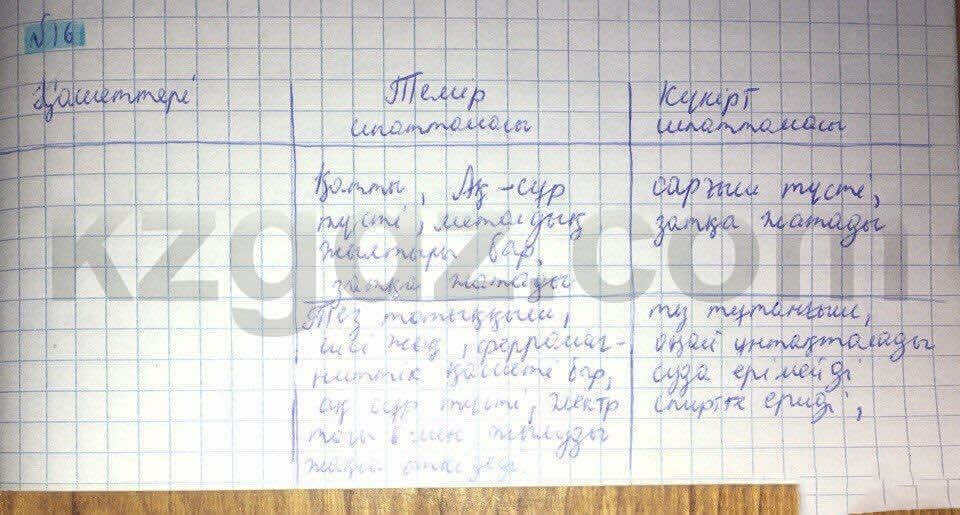 №16
Қасиеттері
Темір
сипаттамасы
Күкірт
сипаттамасы
Қатты, Ақ-сұр
түсті, металдық
жылтыры бар,
затқа жатады
сарғыш түсті,
затқа жатады
Тез тотыққыш,
иісі жоқ, ферромаг-
ниттік қасиеті бар,
ақ сұр түсті, электр
тогы мен жылуды
жақсы өткізеді
тұтанғыш,
оңай ұнтақталады
суда ерімейді
спиртте ериді,
kzgdz.com